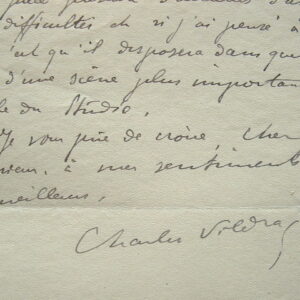 difficultés et si j'ai pensé à
c'est qu'il disposera dans que
d'une scène plus important
du Studio.
Je vous prie de croire, Cher
à mes sentiments
meilleurs,
Charles Vildrac